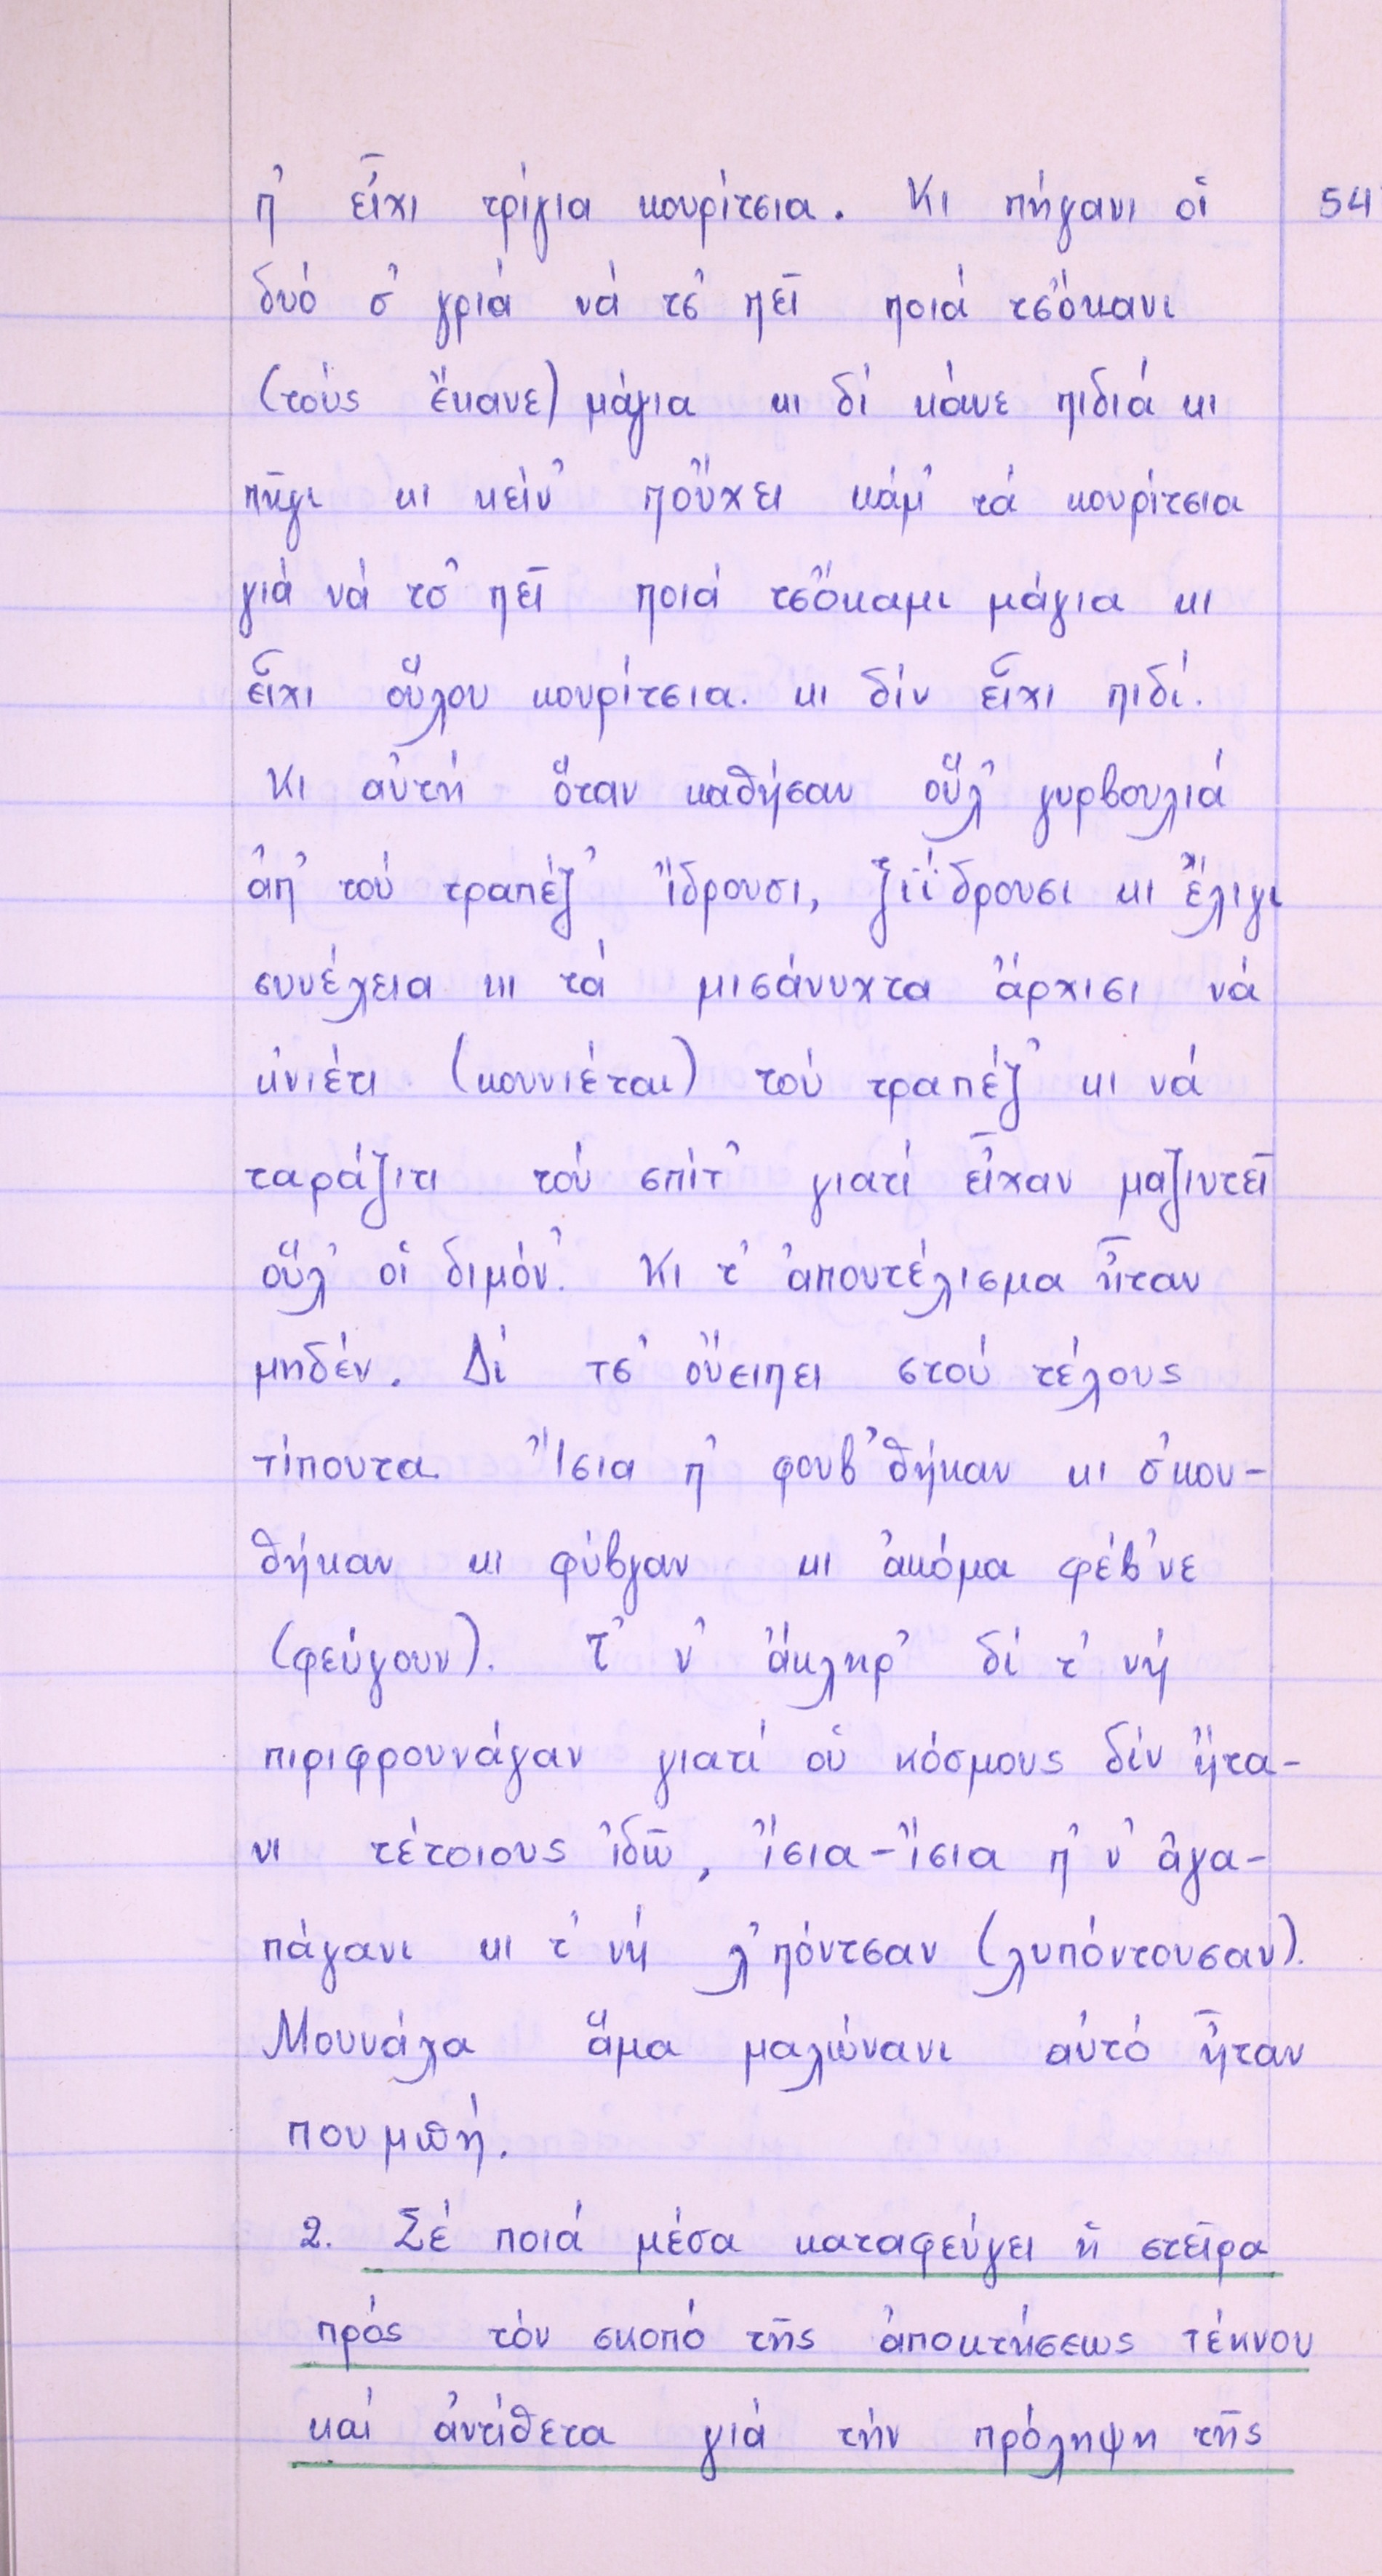 π' εἶχι τρίγια κουρίτσια. Κι πήγανι οἱ 54
δυό σ' γριά νά τσ' πεῖ ποιά τσ'ὄκανι
(τούς ἔκανε) μάγια κι δί κάνε πιδιά κι
πῆγι κι κείν' ποὔχει κάμ' τά κουρίτσια
γιά νά τσ' πεῖ ποιά τσὄκαμι μάγια κι
εἶχι οὕλου κουρίτσια. κι δίν εἶχι πιδί.
Κι αὐτή ὅταν καθήσαν οὕλ' γυρβουλιά
ἀπ' τού τραπέζ' ἵδρουσι, ξιΐδρουσι κι ἔλιγι
συνέχεια κι τά μισάνυχτα ἄρχισι νά
κ'νιέτι (κουνιέται) τού τραπέζ' κι νά
ταράζιτι τού σπίτ' γιατί εἶχαν μαζιυτεῖ
οὕλ' οἱ διμόν'. Κι τ' ἀπουτέλισμα ἦταν
μηδέν. Δί τσ' οὔειπει στού τέλους
τίπουτα. Ἴσια π' φουβ'θήκαν κι σ'κου-
θήκαν κι φύβγαν κι ἀκόμα φέβ'νε
(φεύγουν). Τ' ν' ἄκληρ' δί τ' νή
πιριφρουνάγαν γιατί οὑ κόσμους δίν ἤτα-
νι τέτοιους ἰδῶ, ἴσια-ἴσια π' ν' ἀγα-
πάγανι κι τ' νή λ'πόντσαν (λυπόντουσαν).
Μουνάχα ἅμα μαλώνανι αὐτό ἦταν
που μπή.
2. Σέ ποιά μέσα καταφεύγει ἡ στεῖρα
πρός τόν σκοπό τῆς ἀποκτήσεως τέκνου
καί ἀντίθετα γιά τήν πρόληψη τῆς